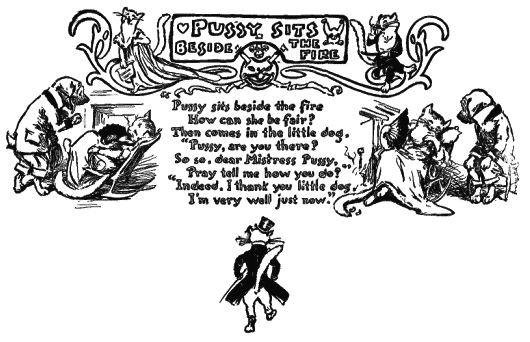 PUSSY SITS
BESIDE THE FIRE
"Pussy sits beside the fire
How can she be fair?
Then comes in the little dog.
"Pussy, are you there?
So so, dear Mistress Pussy,
Pray tell me how you do?"
"Indeed, I thank you little dog
I'm very well just now."